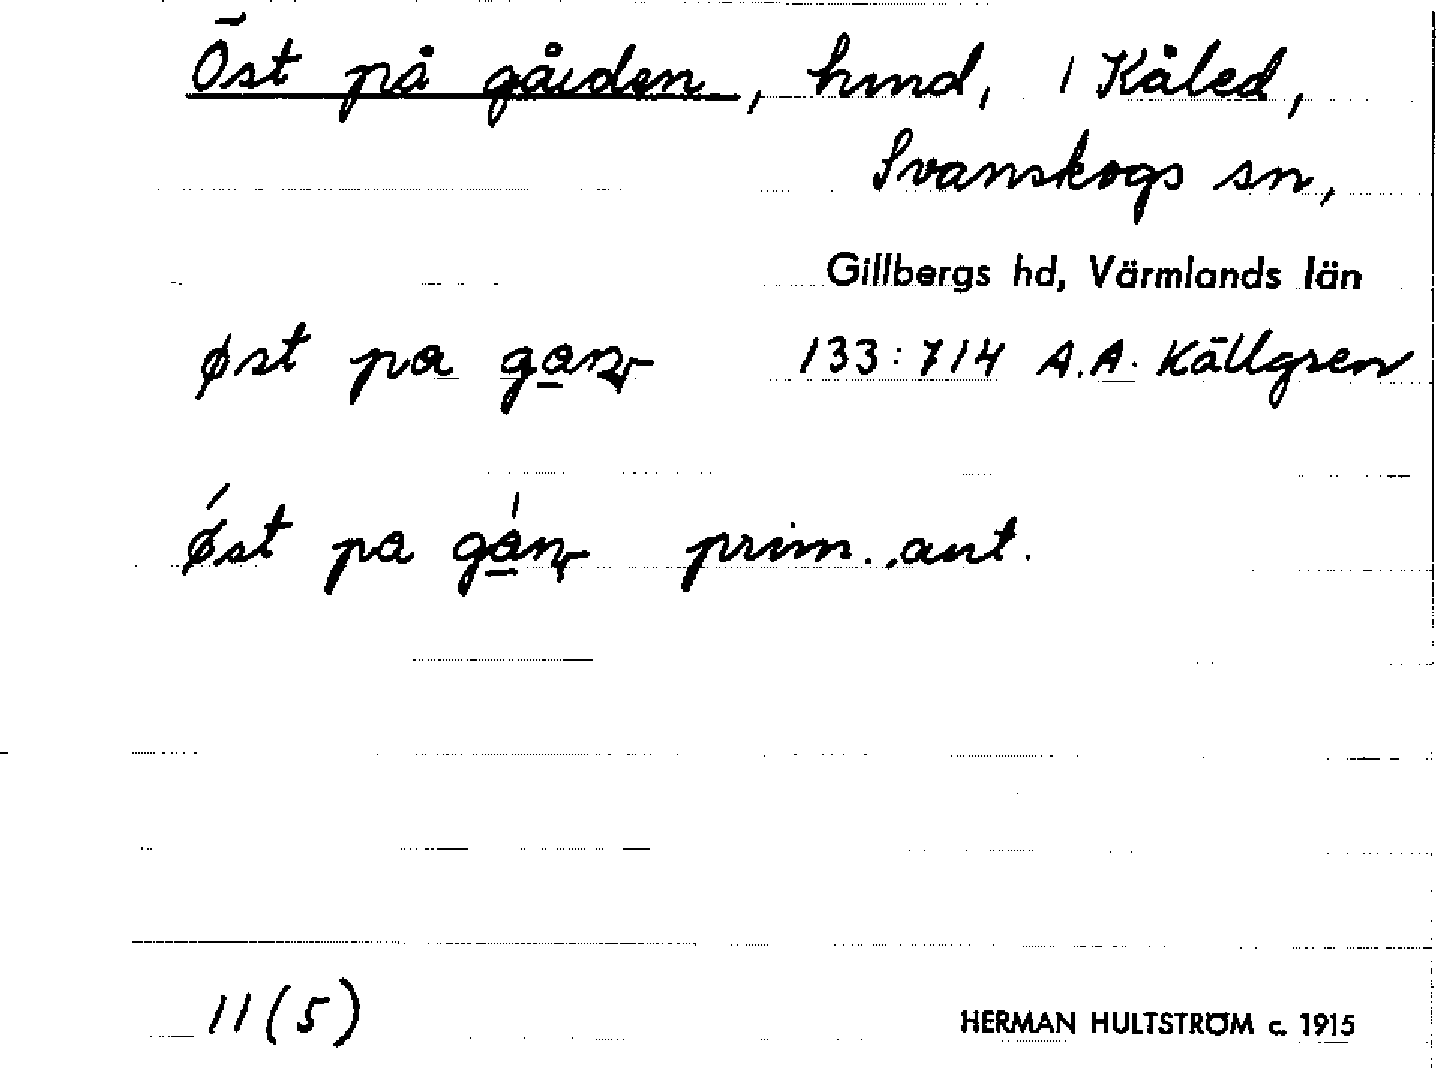 Öst på gården, hmd, i Kåled,
Svanskogs sn,
Gillbergs hd, Värmlands län
øst pa 133:714 A.A. Källgren
øst pa prim. ant.
11(5) HERMAN HULTSTRÖM c. 1915